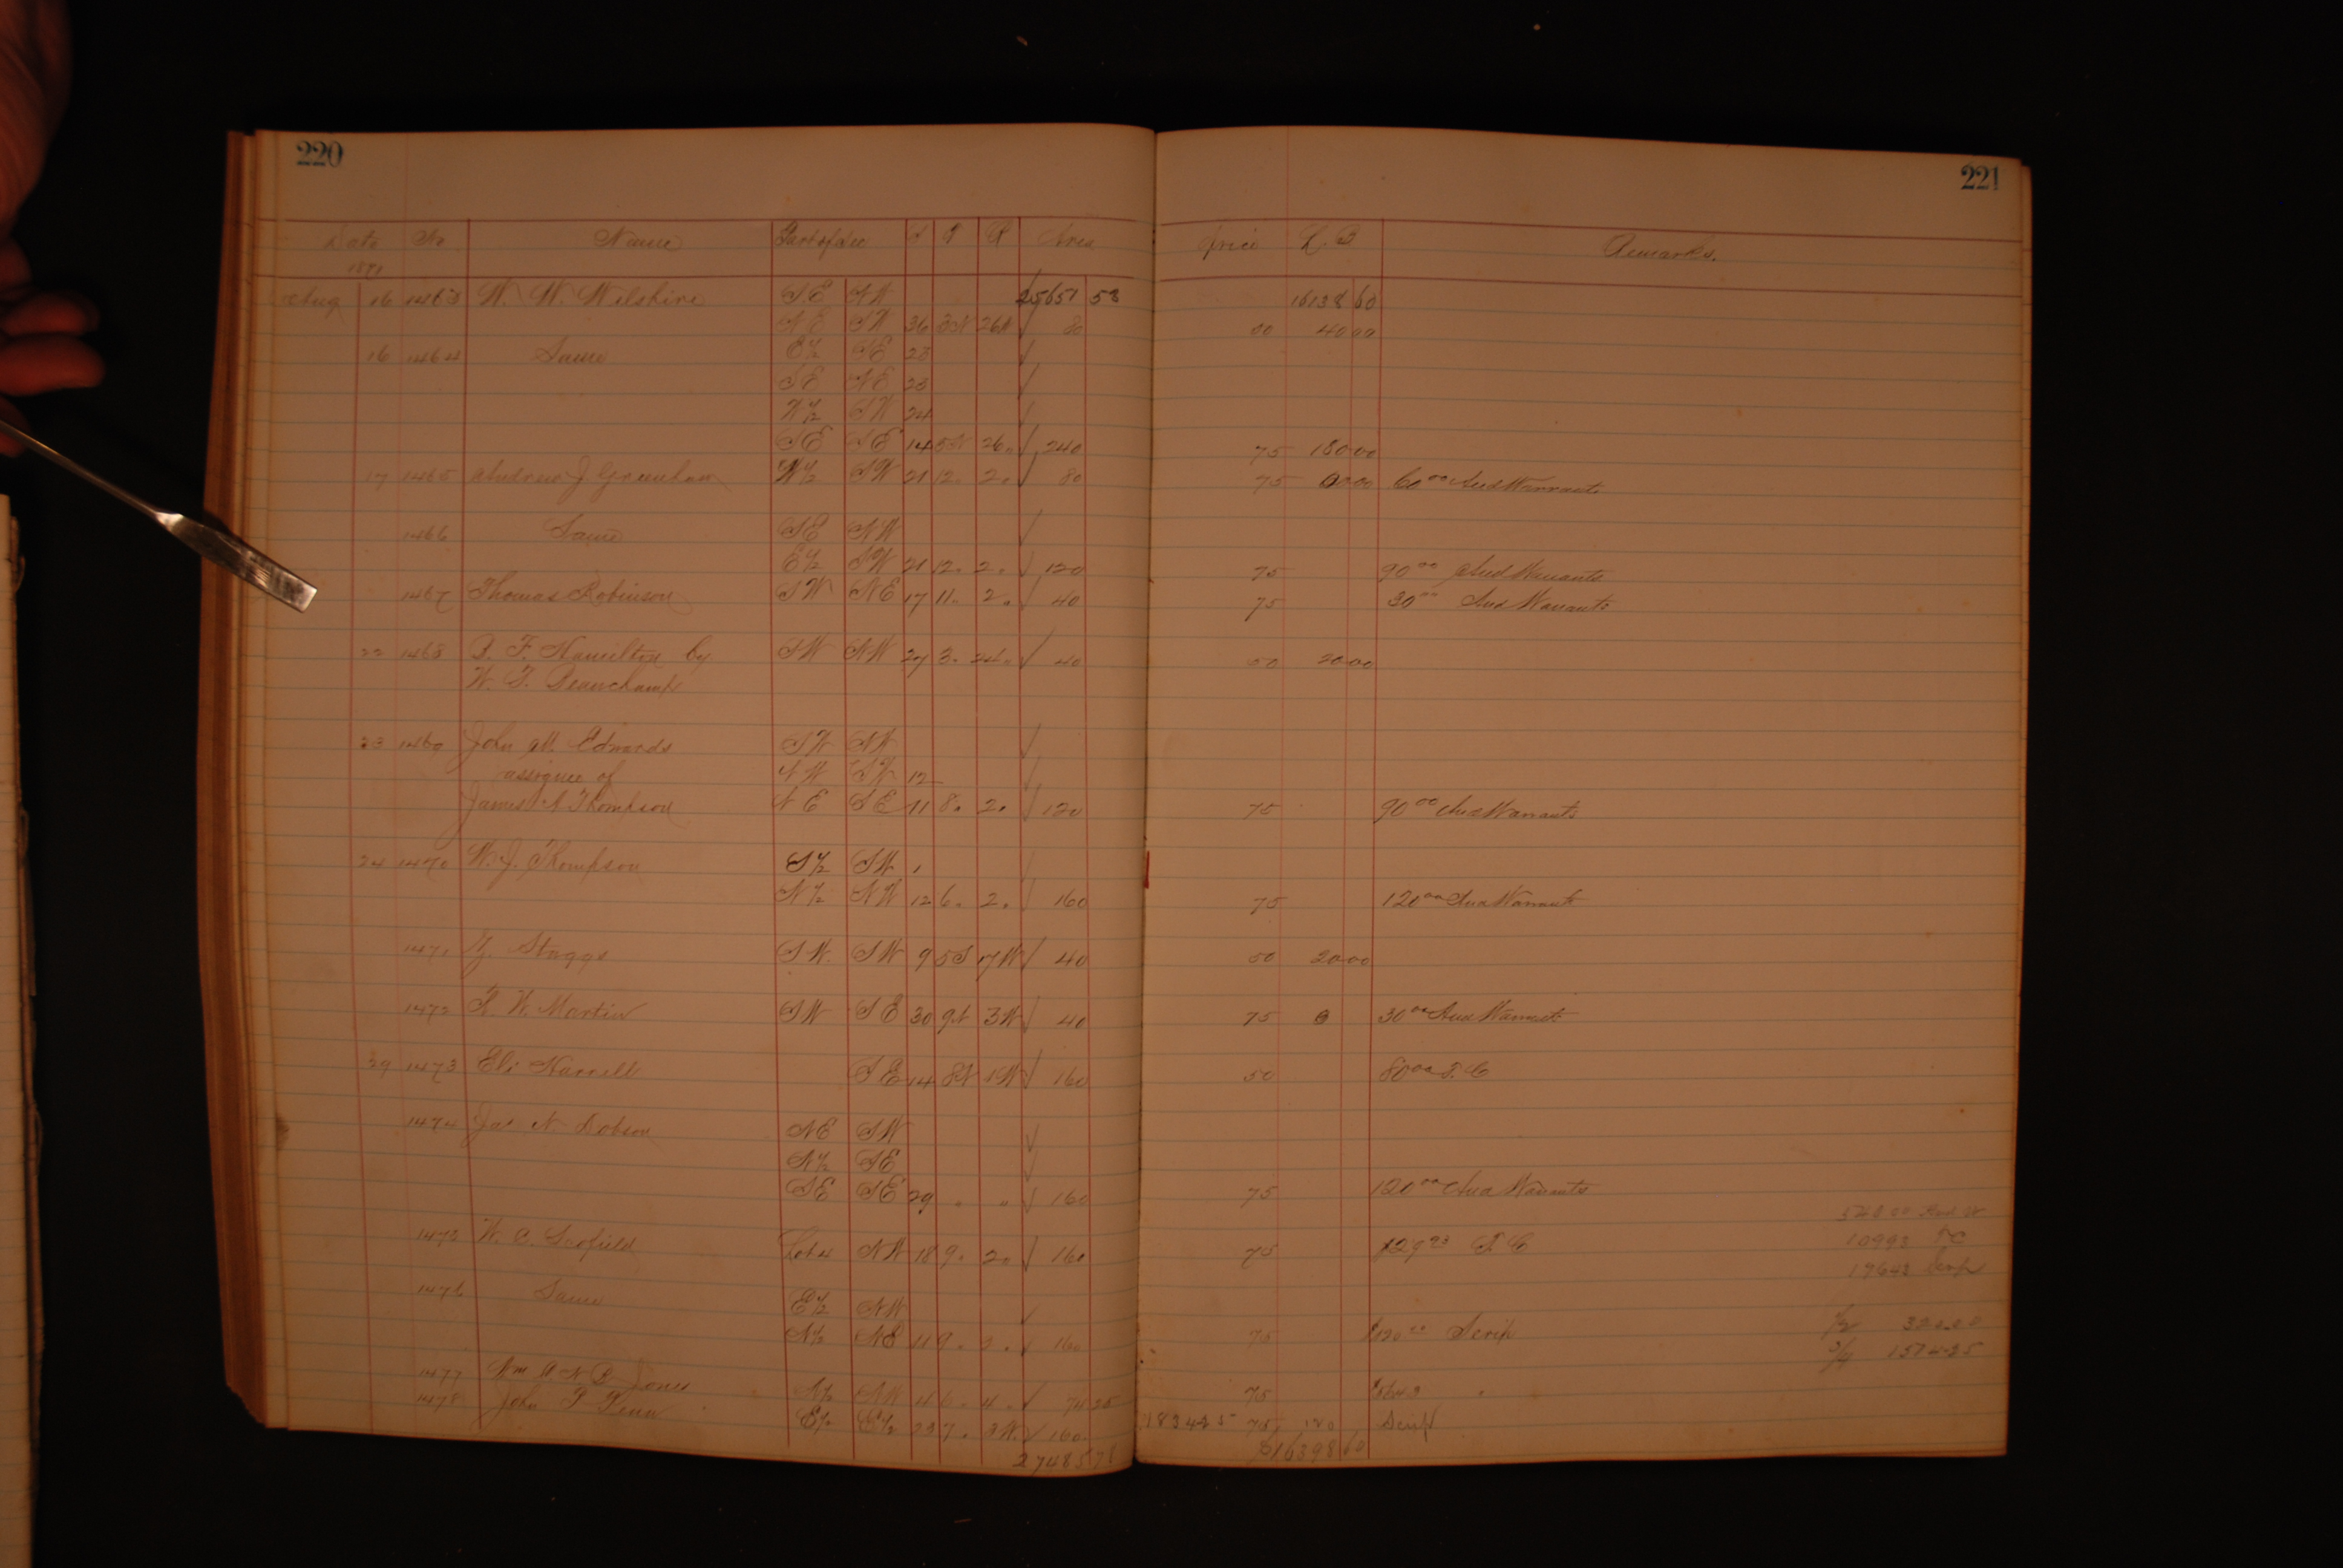 220
221
Date No Name Part of Sec S T R Area Price L. B Remarks.
1871
Aug 16 1463 W. W. Wilshire SE NW 25651 58 16138 60
NE SW 36 3N 26W 80 50 40 00
16 1464 Same E½ SE 23
SE NE 23
W½ SW 24
SE SE 14 5N 26 " 240 75 180 00
17 1465 Andrew J W½ SW 21 12 " 2 " 80 75 00 00 60 00 Aud Warrants
1466 Same SE NW
E½ SW 21 12 " 2 " 120 75 90 00 Aud Warrants
1467 Thomas Robinson SW NE 17 11 " 2 " 40 75 30 00 Aud Warrants
22 1468 B. F. Hamilton by SW NW 27 3 " 24 " 40 50 20 00
W. F. Beauchamp
23 1469 John M. Edwards SW NW
assignee of NW SW 12
James A Thompson NE SE 11 8 " 2 " 120 75 90 00 Aud Warrants
24 1470 W. J. Thompson S½ SW 1
N½ NW 12 6 " 2 " 160 75 120 00 Aud Warrants
1471 Staggs SW SW 9 5S 7W 40 50 20 00
1472 W. Martin SW SE 30 9N 3W 40 75 0 30 00 Aud Warrants
29 1473 Eli Harrell SE 14 8N 1W 160 50 80 00 T. C
1474 Jas N Dobson NE SW
N½ SE
SE SE 29 " " 160 75 120 00 Aud Warrants
540 00 Aud W
1475 W. C. Scofield NW 18 9 " 2 " 160 75 129 93 T C
10993 TC
19643 Scrip
1476 Same E½ NW
N½ NE 11 9 " 2 " 160 75 120 00 Scrip
½ 320.00
¾ 1514 25
1477 Wm Jones N½ NW 4 6 " 4 " 74 25 75 "
1478 John P Penn E½ E½ 23 7 " 3W 160 1834 25 75 120 Scrip
27485 71 $16398 60